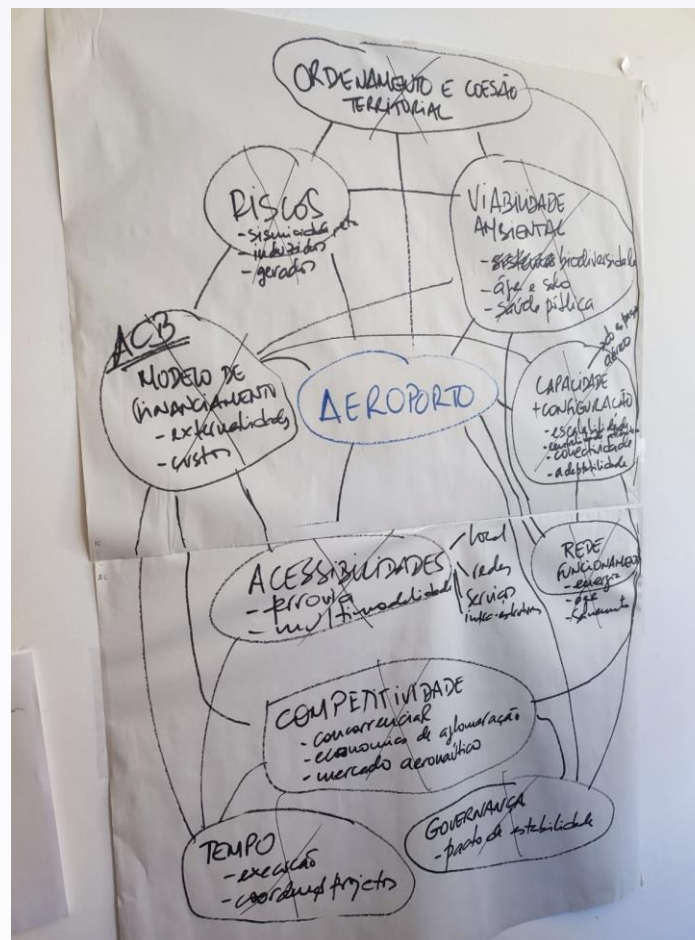 ORDENAMENTO E COESÃO
TERRITORIAL
RISCOS
- sismicidade,
- induzidos
- gerados
VIABILIDADE
AMBIENTAL
- biodiversidade
- água e solo
- saúde pública
ACB
MODELO DE
FINANCIAMENTO
- externalidades
- custos
AEROPORTO
CAPACIDADE
+ CONFIGURAÇÃO
- escalabilidade
- conectividade
- adaptabilidade
ACESSIBILIDADES
- ferrovia
- multimodalidade
local
redes
serviço
infra-estruturas
REDE
FUNCIONAMENTO
- energia
- água
- saneamento
COMPETITIVIDADE
- concorrencial
- economias de aglomeração
- mercado aeronáutico
TEMPO
- execução
- projetos
GOVERNANÇA
- pacto de estabilidade